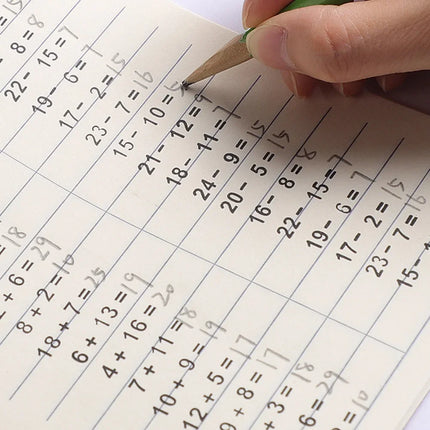 - 8=8
22- 15=7
19- 6=7
17- 2=15
23- 7=16
15- 10=5
21- 12=9
18- 11=7
24- 9=15
20- 5=15
16- 8=8
22- 15=7
19- 6=7
17- 2=15
23- 7=16
15-
=18
+6=29
8+2=10
18+7=25
6+13=19
4+16=20
7+11=18
10+9=19
12+5=17
9+8=17
+3=18
6=29
=10